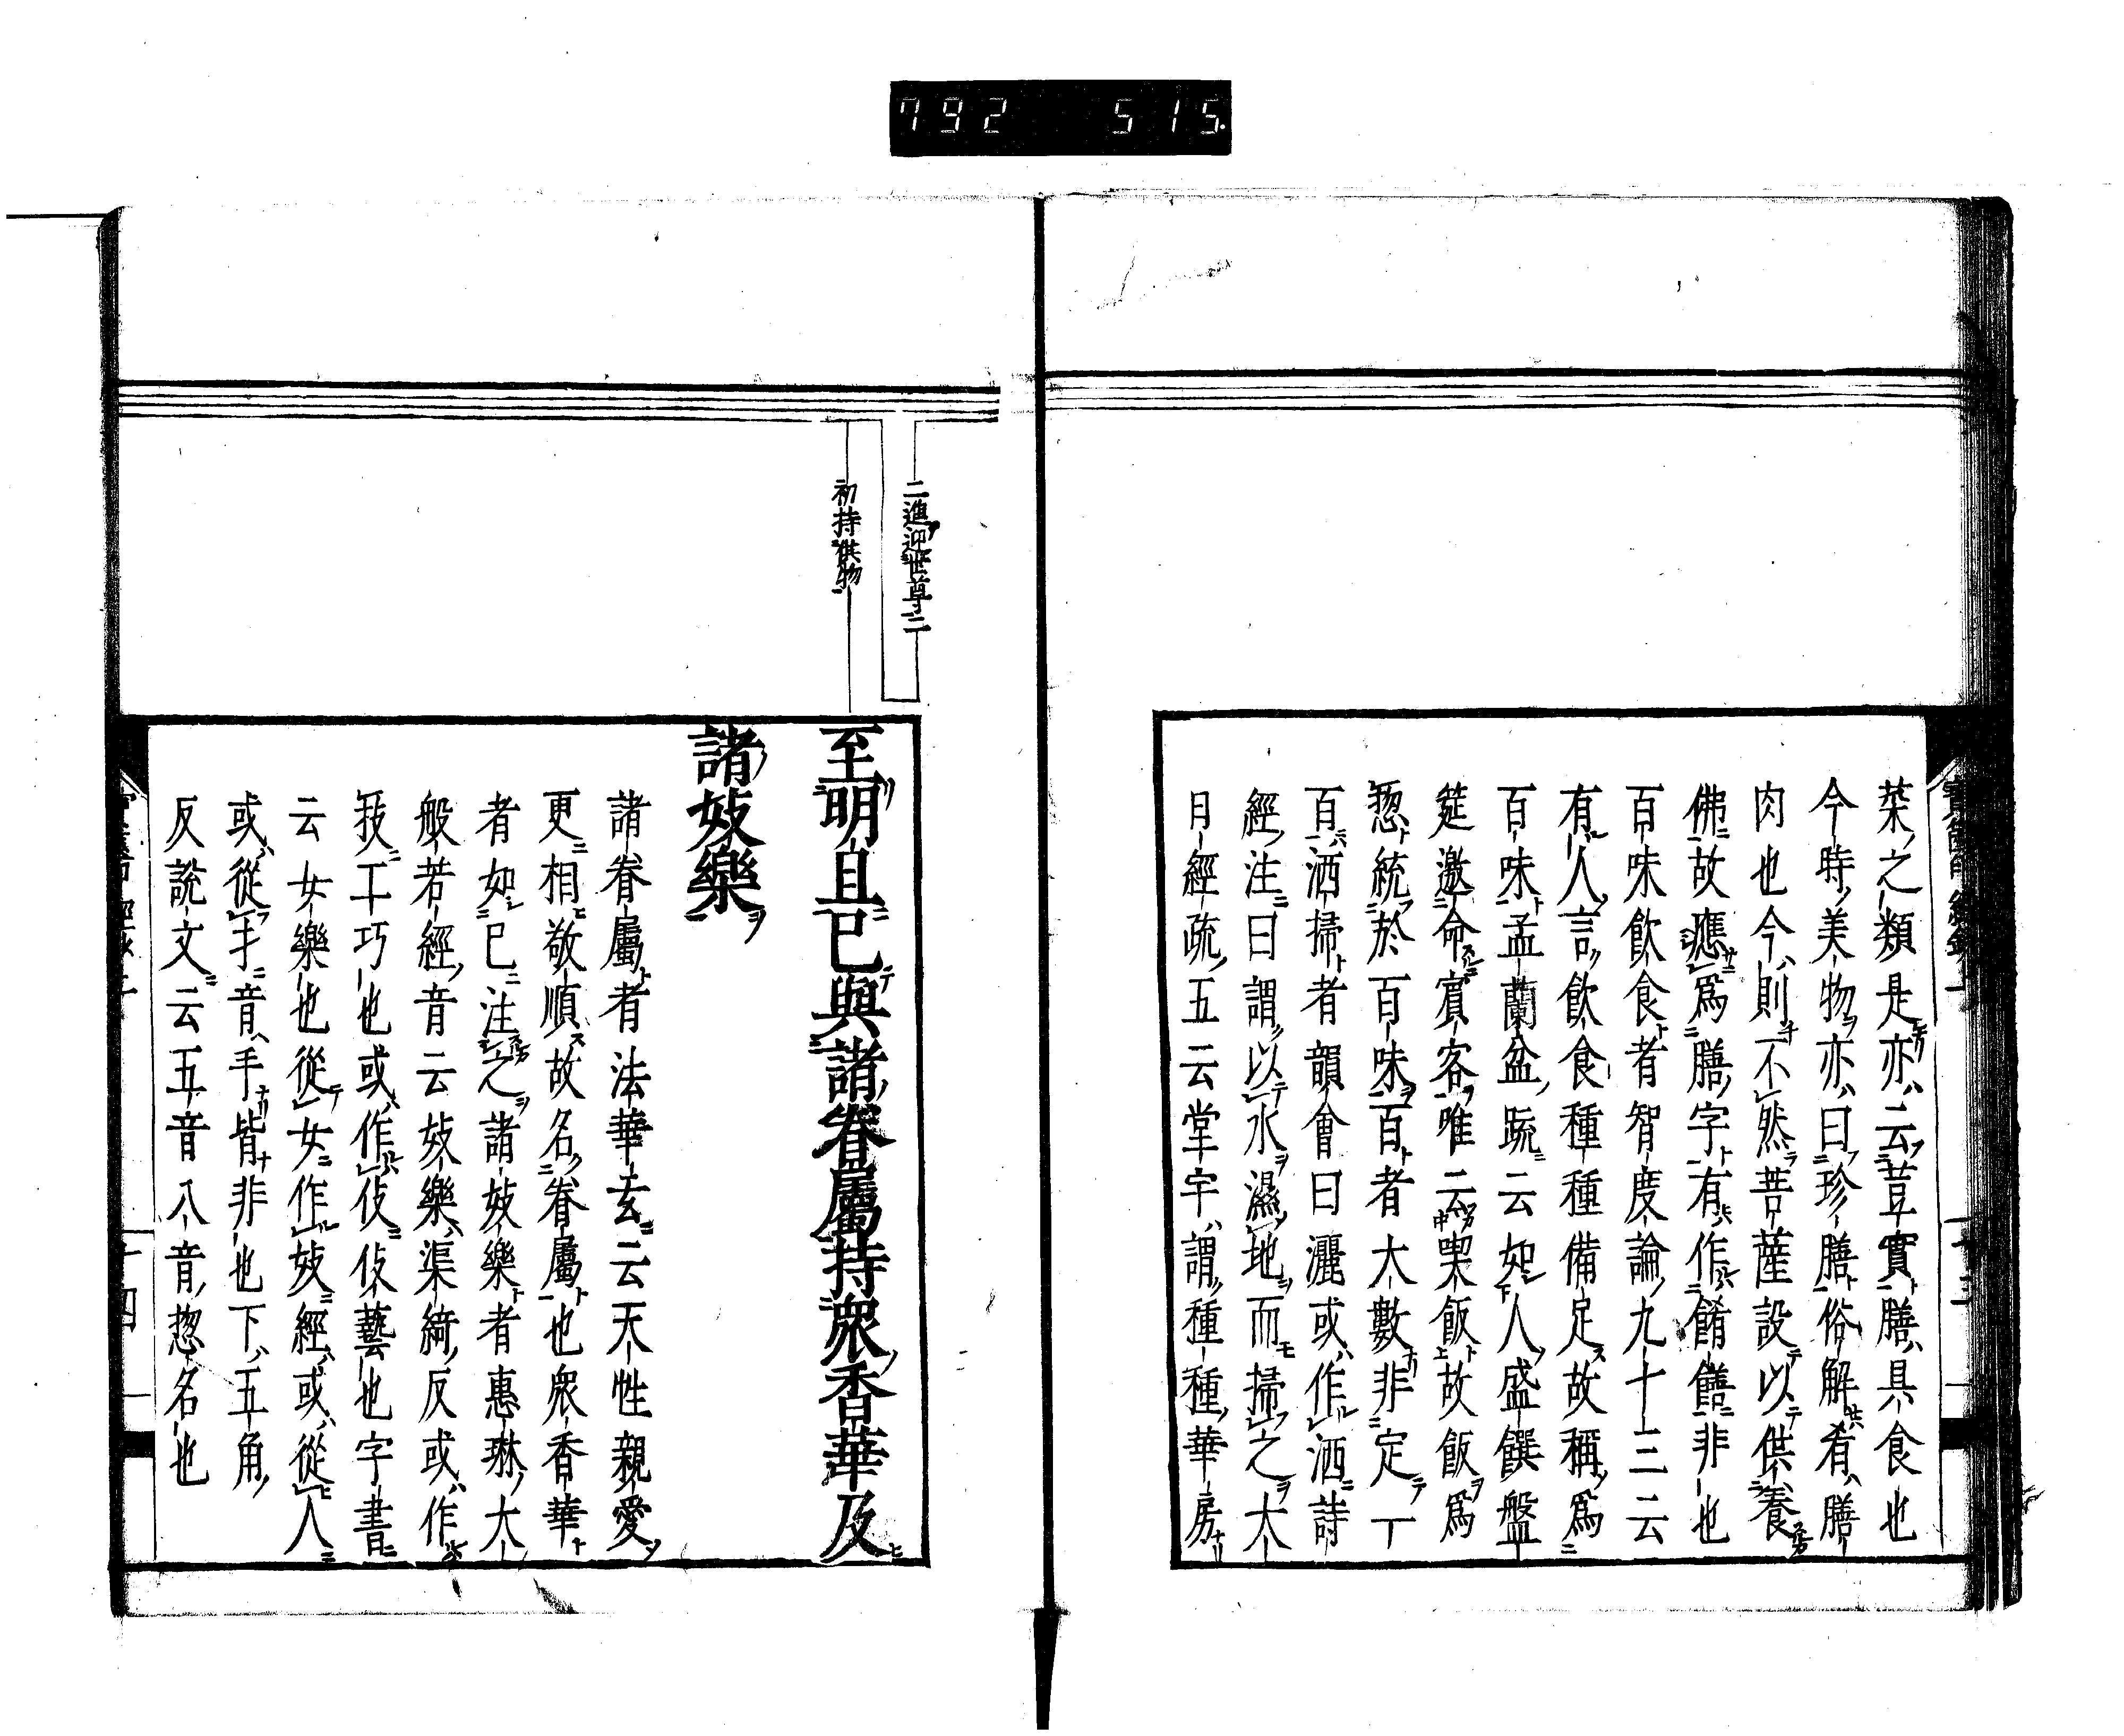 792 515
菜之類是亦云荳實膳具食也
今時美物亦曰珍膳俗解肴膳
肉也今則不然菩薩設以供養
佛故應爲膳字有作餚饍非也
百味飲食者智度論九十三云
有人言飲食種種備足故稱爲
百味盂蘭盆疏云如人盛饌盤
筵邀命賓客唯云喫飯故飯爲
惣統於百味百者大數非定一
百洒掃者韻會曰灑或作洒詩
經注曰謂以水濕地而掃之大
日經疏五云堂宇謂種種華房
二進迎世尊二
初持供物
至明旦已與諸眷屬持衆香華及
諸妓樂
諸眷屬者法華玄云天性親愛
更相敬順故名眷屬也衆香華
者如已注之諸妓樂者惠琳大
般若經音云妓樂渠綺反或作
技工巧也或作伎伎藝也字書
云女樂也從女作妓經或從人
或從扌音手皆非也下五角
反說文云五音八音惣名也
十四